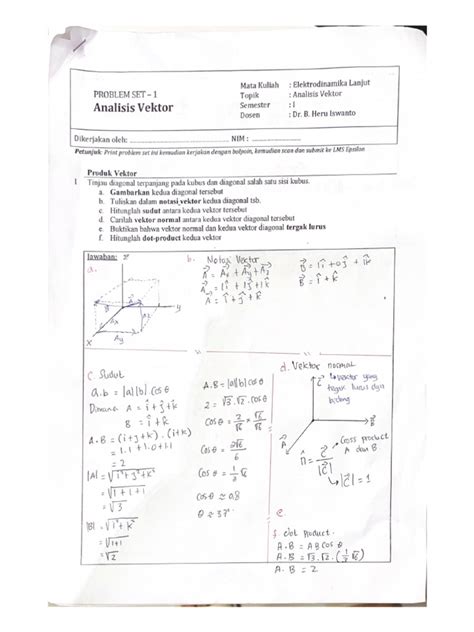 PROBLEM SET – 1
Analisis Vektor
Mata Kuliah : Elektrodinamika Lanjut
Topik : Analisis Vektor
Semester : I
Dosen : Dr. B. Heru Iswanto
Dikerjakan oleh: NIM :
Petunjuk: Print problem set ini kemudian kerjakan dengan bolpoin, kemudian scan dan submit ke LMS Epsilon
Produk Vektor
1 Tinjau diagonal terpanjang pada kubus dan diagonal salah satu sisi kubus.
a. Gambarkan kedua diagonal tersebut
b. Tuliskan dalam notasi vektor kedua diagonal tsb.
c. Hitunglah sudut antara kedua vektor tersebut
d. Carilah vektor normal antara kedua vektor diagonal tersebut
e. Buktikan bahwa vektor normal dan kedua vektor diagonal tergak lurus
f. Hitunglah dot-product kedua vektor
Jawaban:
a.
z
y
x
Ax
Ay
Az
b. Notasi Vector
A = Ax + Ay + Az
A = 1î + 1ĵ + 1k̂
A = î + ĵ + k̂
B = 1î + 0ĵ + 1k̂
B = î + k̂
c. Sudut
a.b = |a||b| cos θ
Dimana A = î + ĵ + k̂
B = î + k̂
A.B = (i+j+k) . (i+k)
= 1.1 + 1.0 + 1.1
= 2
|A| = √i²+j²+k²
= √1+1+1
= √3
|B| = √i²+k²
= √1+1
= √2
A.B = |a||b| cos θ
2 = √3.√2.cos θ
cos θ = 2/√6 × √6/√6
cos θ = 2√6/6
cos θ = 1/3 √6
cos θ ≈ 0.8
θ ≈ 37°
d. Vektor normal
C → vektor yang
tegak lurus dgn
bidang
B
A
n̂ = C/|C|
Cross product
A dan B
|C| = 1
e
f. dot product
A.B = AB cos θ
A.B = √3.√2.(1/3 √6)
A.B = 2